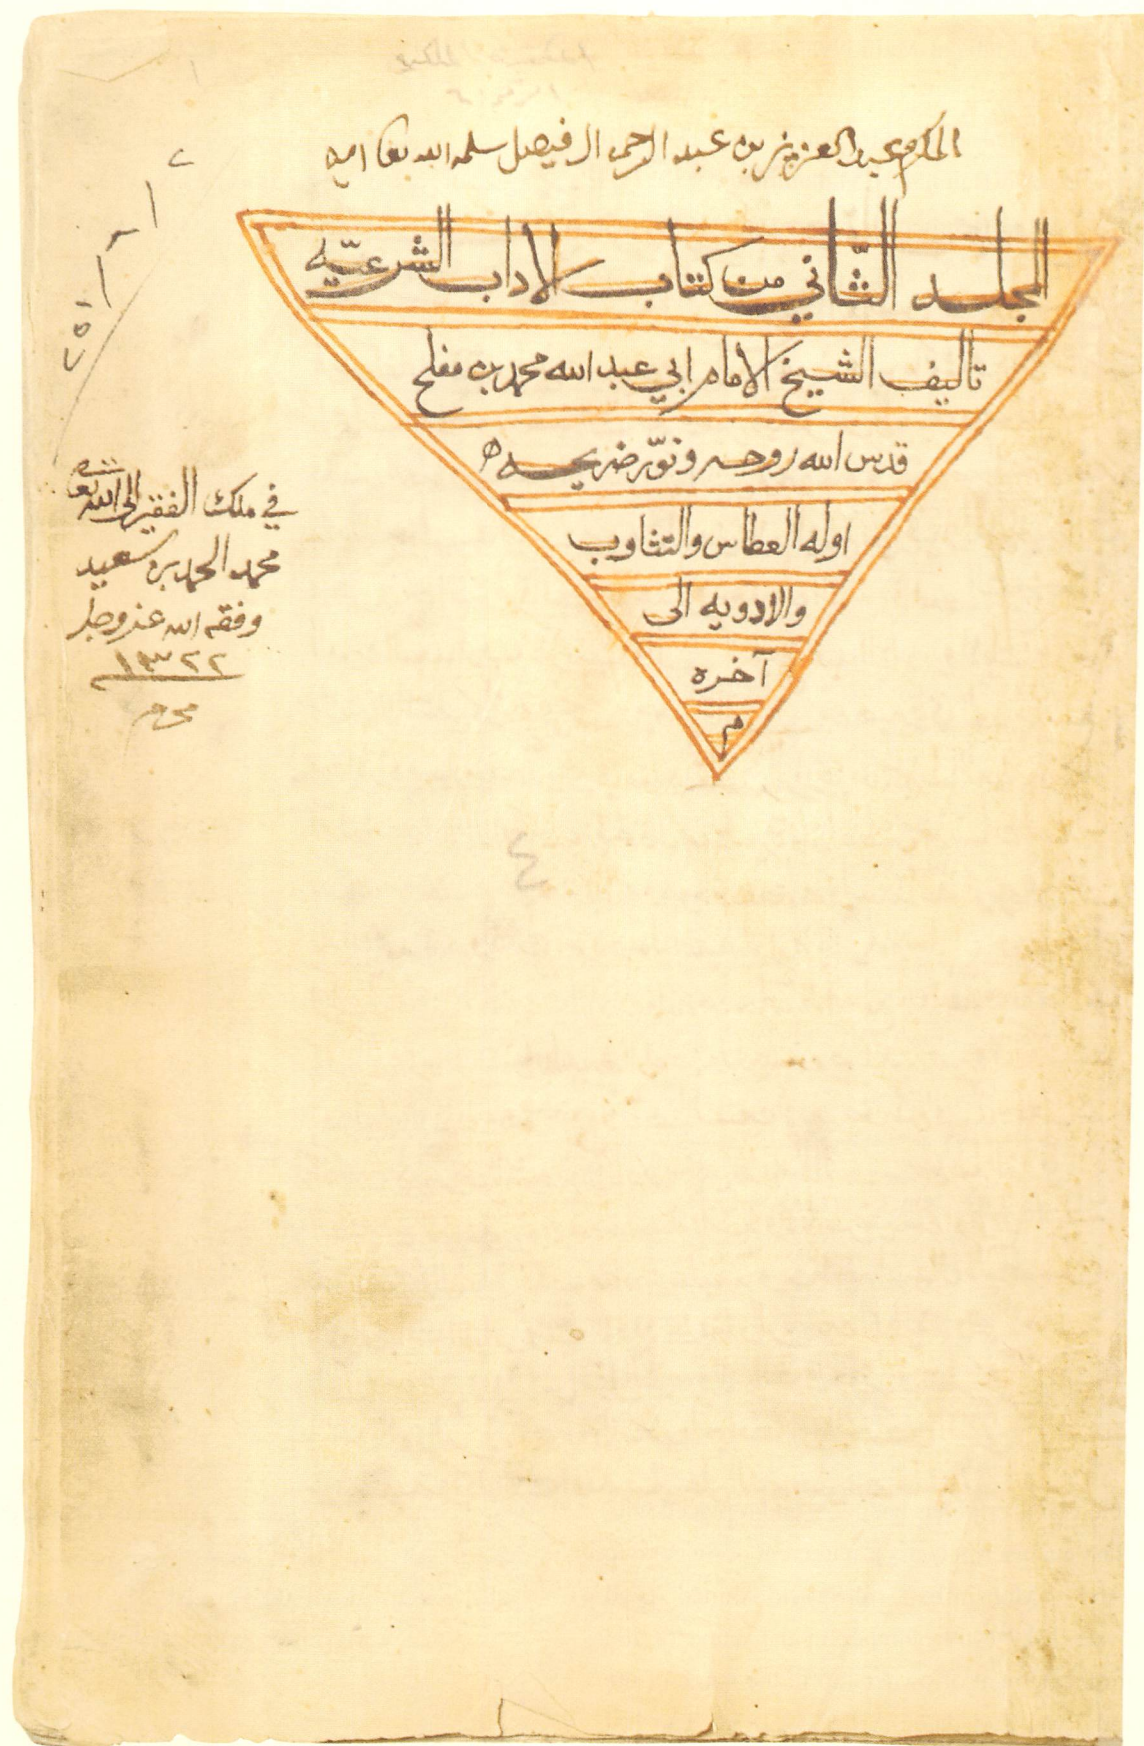 المكرم عبد العزيز بن عبد الرحمن ال فيصل سلمه الله تعا امين
المجلد الثّاني من كتاب الاداب الشرعيّه
تاليف الشيخ الامام ابي عبد الله محمد بن مفلح
قدس الله روحه ونوّر ضريحه ه
اوله العطاس والتثاوب
والادويه الى
آخره
م
في ملك الفقير الى الله تعا
محمد الحمد بن سعيد
وفقه الله عز وجل
١٣٢٢
محرم
٤